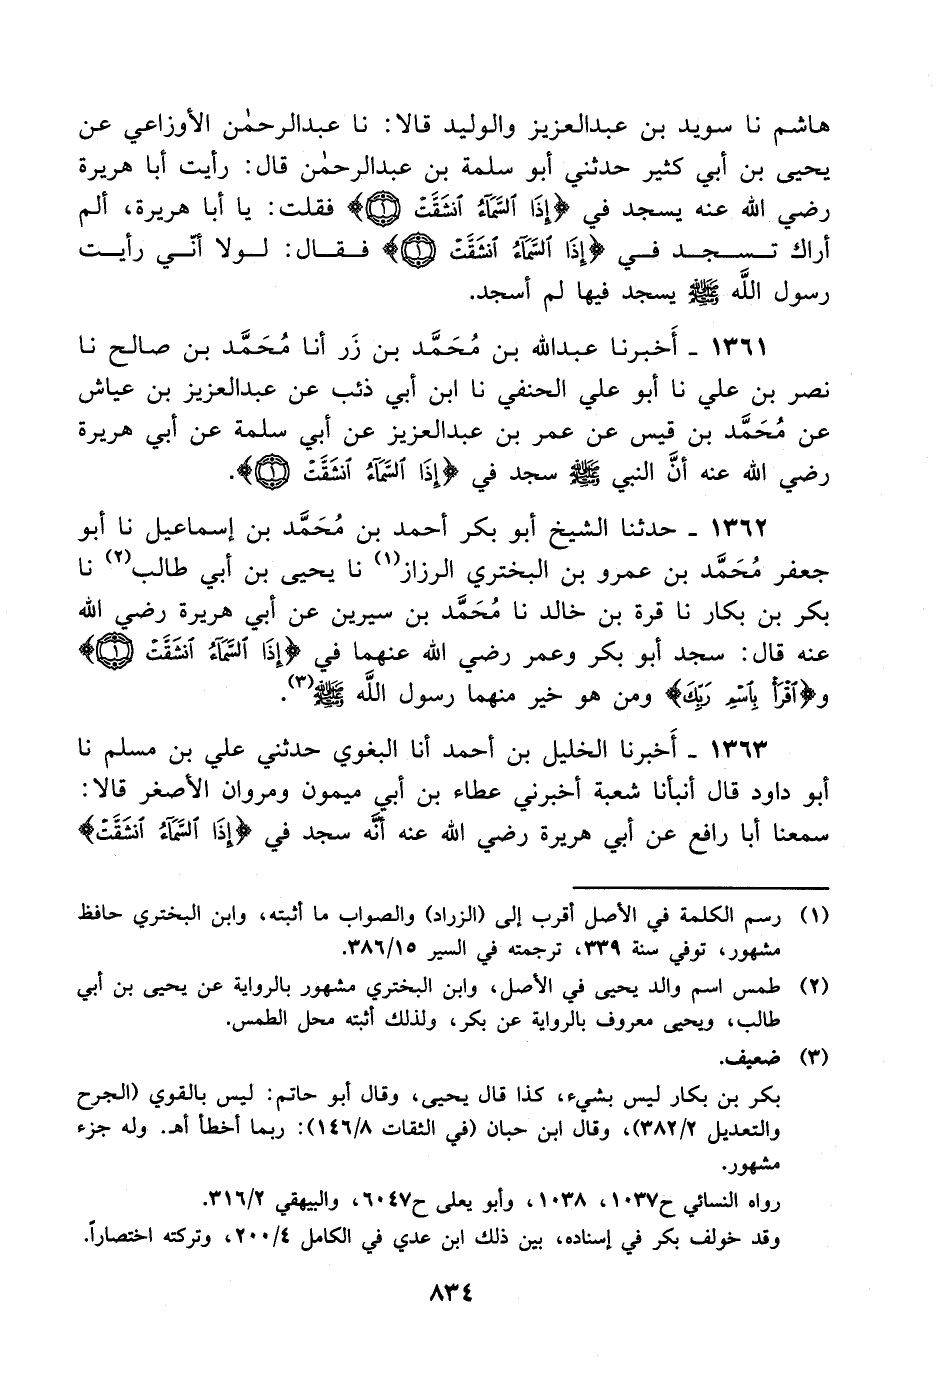 هاشم نا سويد بن عبدالعزيز والوليد قالا: نا عبدالرحمٰن الأوزاعي عن
يحيى بن أبي كثير حدثني أبو سلمة بن عبدالرحمٰن قال: رأيت أبا هريرة
رضي الله عنه يسجد في ﴿إِذَا ٱلسَّمَآءُ ٱنشَقَّتْ ۝١﴾ فقلت: يا أبا هريرة، ألم
أراك تسجد في ﴿إِذَا ٱلسَّمَآءُ ٱنشَقَّتْ ۝١﴾ فقال: لولا أنّي رأيت
رسول اللَّه ﷺ يسجد فيها لم أسجد.
١٣٦١ ـ أَخبرنا عبدالله بن مُحَمَّد بن زَر أنا مُحَمَّد بن صالح نا
نصر بن علي نا أبو علي الحنفي نا ابن أبي ذئب عن عبدالعزيز بن عياش
عن مُحَمَّد بن قيس عن عمر بن عبدالعزيز عن أبي سلمة عن أبي هريرة
رضي الله عنه أنَّ النبي ﷺ سجد في ﴿إِذَا ٱلسَّمَآءُ ٱنشَقَّتْ ۝١﴾.
١٣٦٢ ـ حدثنا الشيخ أبو بكر أحمد بن مُحَمَّد بن إسماعيل نا أبو
جعفر مُحَمَّد بن عمرو بن البختري الرزاز(١) نا يحيى بن أبي طالب(٢) نا
بكر بن بكار نا قرة بن خالد نا مُحَمَّد بن سيرين عن أبي هريرة رضي الله
عنه قال: سجد أبو بكر وعمر رضي الله عنهما في ﴿إِذَا ٱلسَّمَآءُ ٱنشَقَّتْ ۝١﴾
و﴿ٱقْرَأْ بِٱسْمِ رَبِّكَ﴾ ومن هو خير منهما رسول اللَّه ﷺ(٣).
١٣٦٣ ـ أَخبرنا الخليل بن أحمد أنا البغوي حدثني علي بن مسلم نا
أبو داود قال أنبأنا شعبة أخبرني عطاء بن أبي ميمون ومروان الأصغر قالا:
سمعنا أبا رافع عن أبي هريرة رضي الله عنه أنَّه سجد في ﴿إِذَا ٱلسَّمَآءُ ٱنشَقَّتْ﴾
(١) رسم الكلمة في الأصل أقرب إلى (الزراد) والصواب ما أثبته، وابن البختري حافظ
مشهور، توفي سنة ٣٣٩، ترجمته في السير ٣٨٦/١٥.
(٢) طمس اسم والد يحيى في الأصل، وابن البختري مشهور بالرواية عن يحيى بن أبي
طالب، ويحيى معروف بالرواية عن بكر، ولذلك أثبته محل الطمس.
(٣) ضعيف.
بكر بن بكار ليس بشيء، كذا قال يحيى، وقال أبو حاتم: ليس بالقوي (الجرح
والتعديل ٣٨٢/٢)، وقال ابن حبان (في الثقات ١٤٦/٨): ربما أخطأ أهـ. وله جزء
مشهور.
رواه النسائي ح١٠٣٧، ١٠٣٨، وأبو يعلى ح٦٠٤٧، والبيهقي ٣١٦/٢.
وقد خولف بكر في إسناده، بين ذلك ابن عدي في الكامل ٢٠٠/٤، وتركته اختصاراً.
٨٣٤